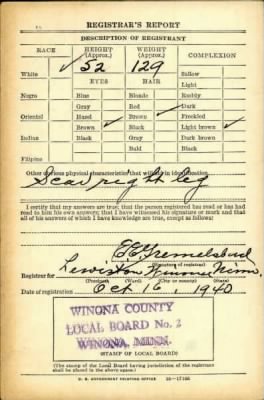 REGISTRAR'S REPORT
DESCRIPTION OF REGISTRANT
RACE HEIGHT (Approx.) WEIGHT (Approx.) COMPLEXION
White ✓ 52 129 Sallow
EYES HAIR Light
Negro Blue Blonde Ruddy
Gray Red Dark
Oriental Hazel Brown ✓ Freckled
Brown ✓ Black Light brown ✓
Indian Black Gray Dark brown
Bald Black
Filipino
Other obvious physical characteristics that will aid in identification
Scar right leg
I certify that my answers are true; that the person registered has read or has had
read to him his own answers; that I have witnessed his signature or mark and that
all of his answers of which I have knowledge are true, except as follows:
(Signature of registrar)
Registrar for Lewiston Winona Minn.
(Precinct) (Ward) (City or county)
Date of registration Oct 16, 1940
WINONA COUNTY
LOCAL BOARD No. 2
WINONA, MINN.
(STAMP OF LOCAL BOARD)
(The stamp of the Local Board having jurisdiction of the registrant
shall be placed in the above space.)
U. S. GOVERNMENT PRINTING OFFICE